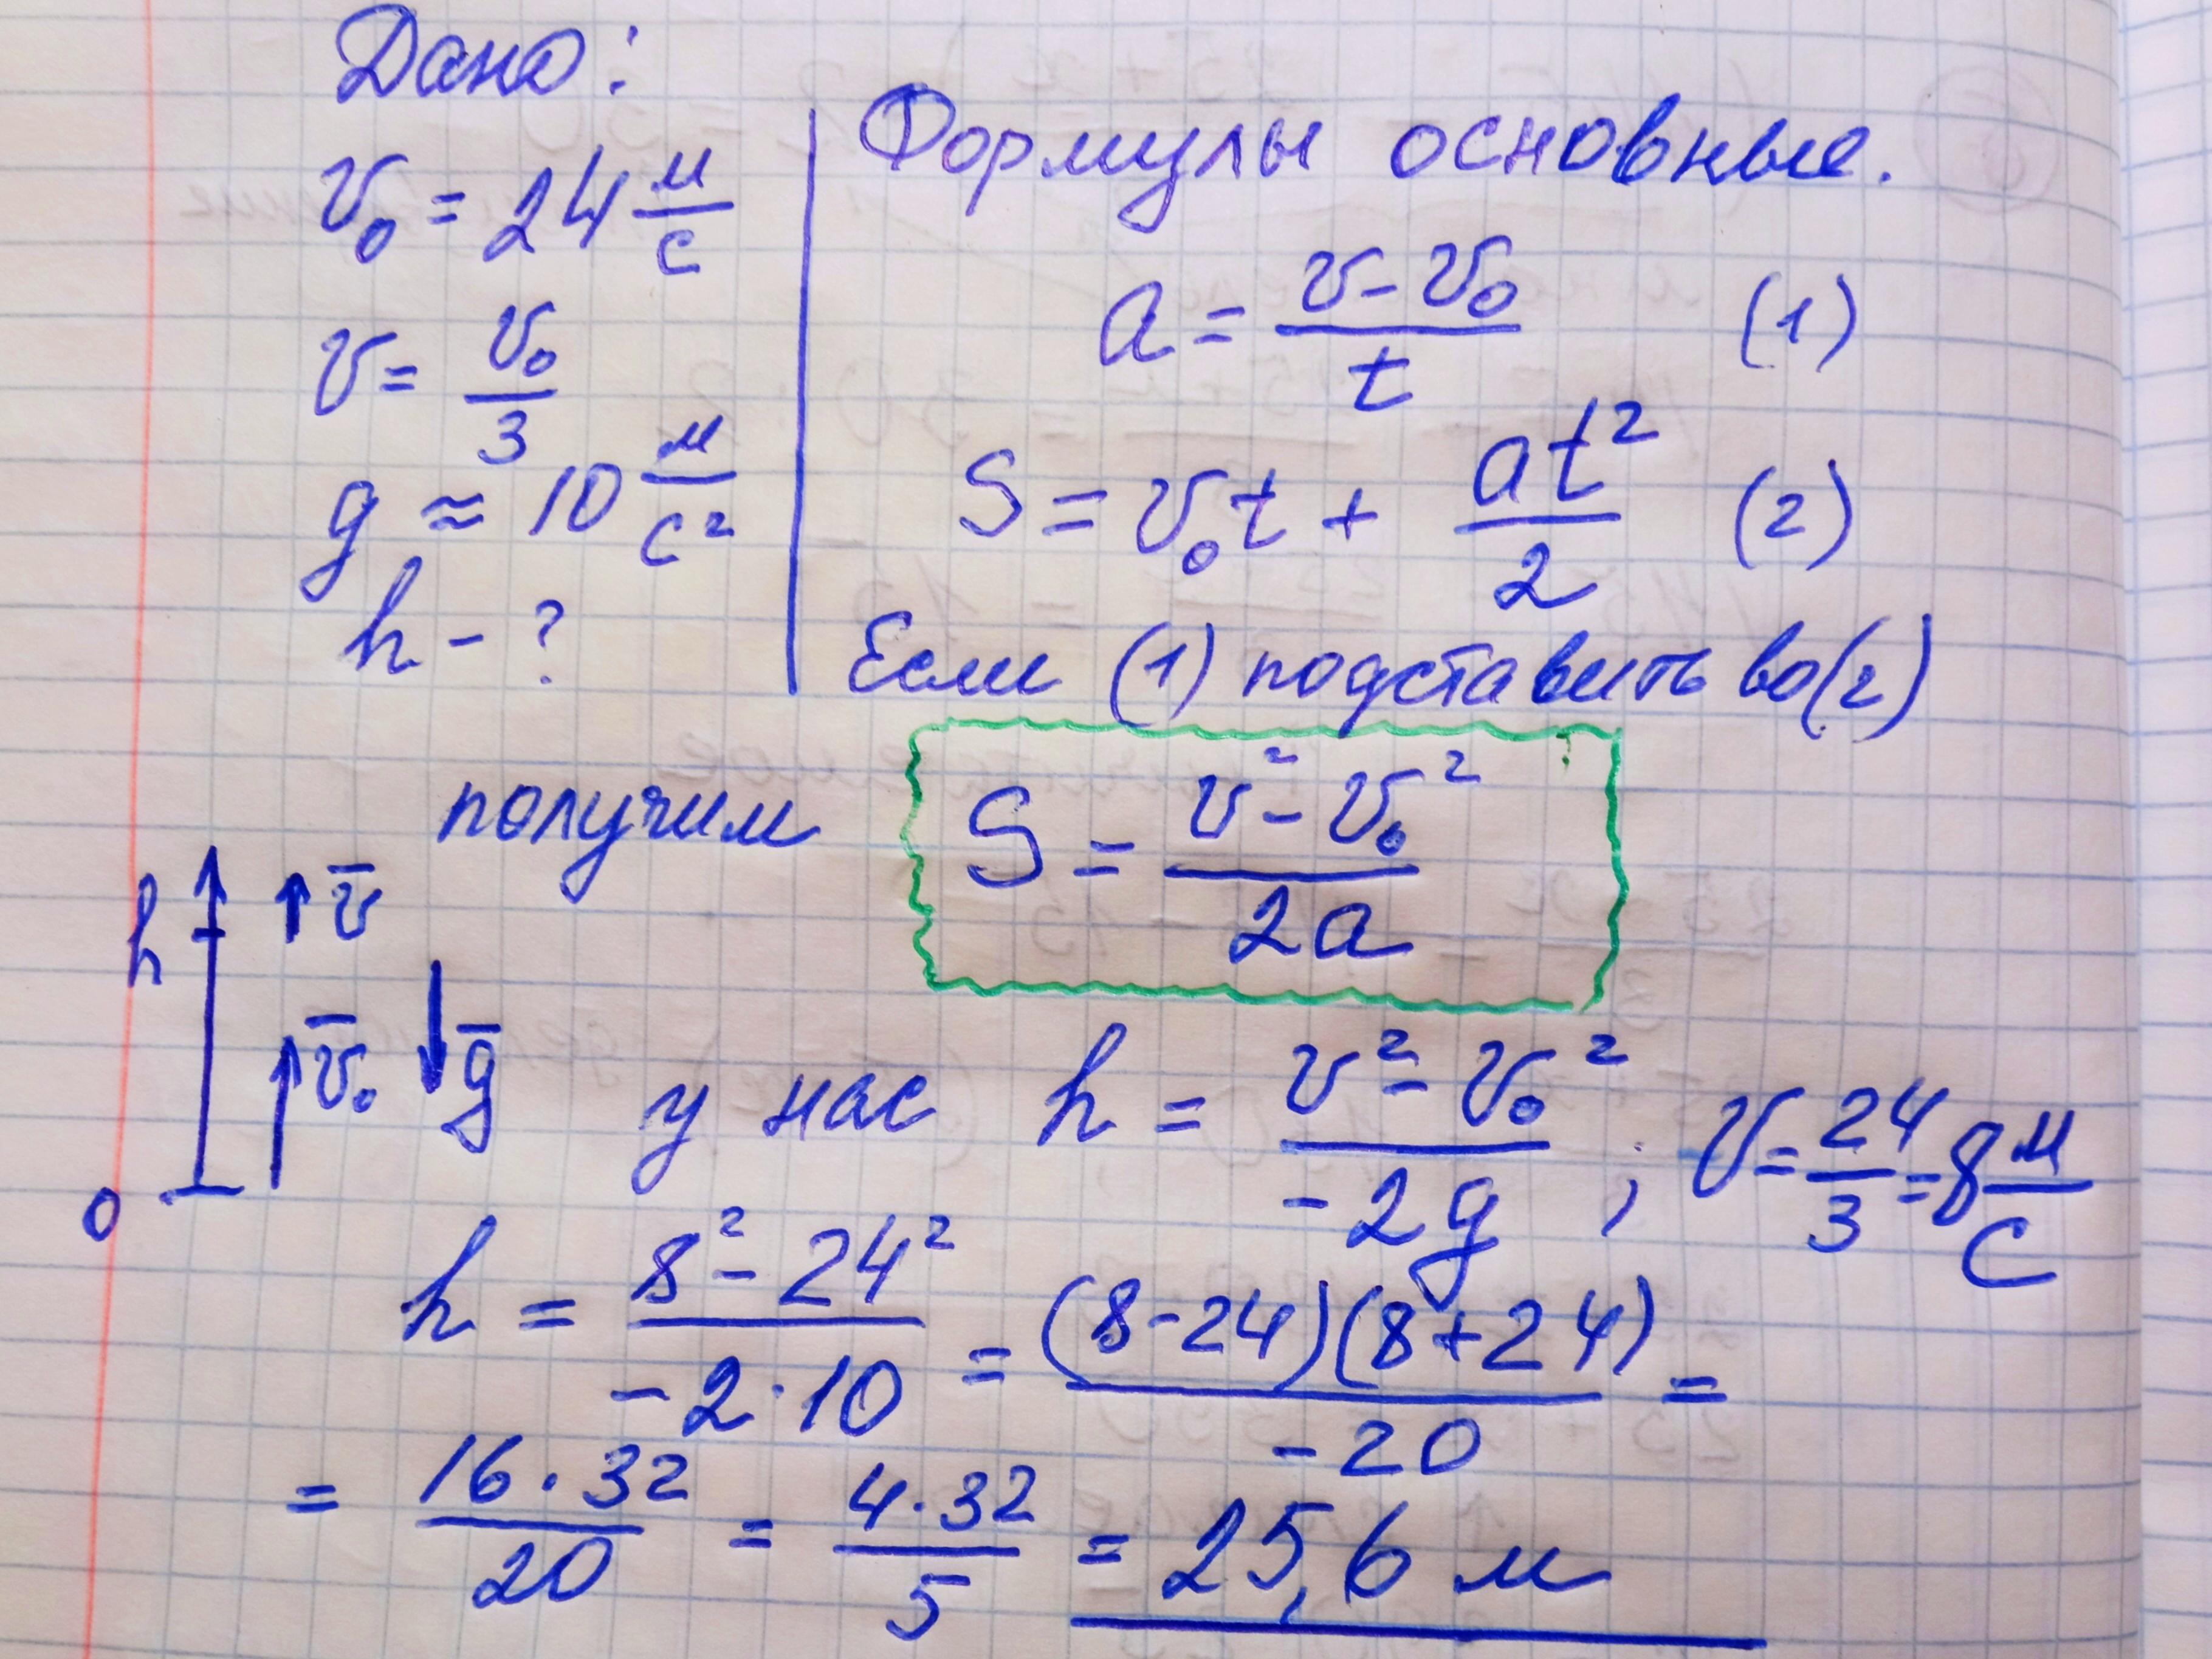 Дано:
v₀ = 24 м/с
v = v₀/3
g ≈ 10 м/с²
h - ?
Формулы основные.
a = (v - v₀)/t (1)
S = v₀t + at²/2 (2)
Если (1) подставить во (2)
получим S = (v² - v₀²)/2a
h
v̅
v̅₀
g̅
0
у нас h = (v² - v₀²)/-2g ; v = 24/3 = 8 м/с
h = (8² - 24²)/(-2·10) = (8-24)(8+24)/-20 =
= 16·32/20 = 4·32/5 = 25,6 м